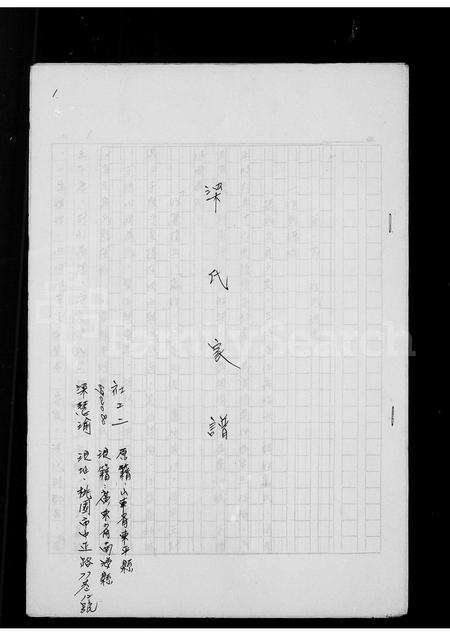 1.
梁氏家譜
社工二
原籍:山東省東平縣
現籍:廣東省南海縣
梁慧瑜
現址:桃園市中正路
FamilySearch